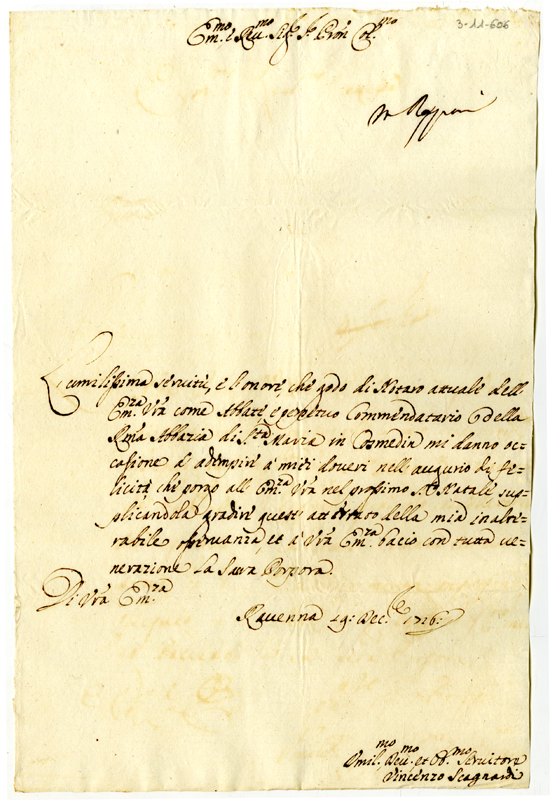 3-11-606
Em.mo e Reu.mo Sig.r P.ron Col.mo
L'umilissima seruitù, e l'onore, che godo di Notaro attuale dell'
Em.za Vrã come Abbate e perpetuo Commendatario della
Rma Abbazia di S.ta Maria in Cosmedin mi danno oc-
casione d'adempire à miei doueri nell'augurio di fe-
licità che porgo all' Em.za Vrã nel prossimo S. Natale sup-
plicandola gradire quest' attestato della mia inalte-
rabile osseruanza, et à Vrã Em.za bacio con tutta ue-
nerazione la Sacra Porpora.
Di Vrã Em.za
Rauenna 19: Dec.e 1716:
Vmil.mo Deu.mo et Ob.mo Seruitore
Vincenzo Scagnardi